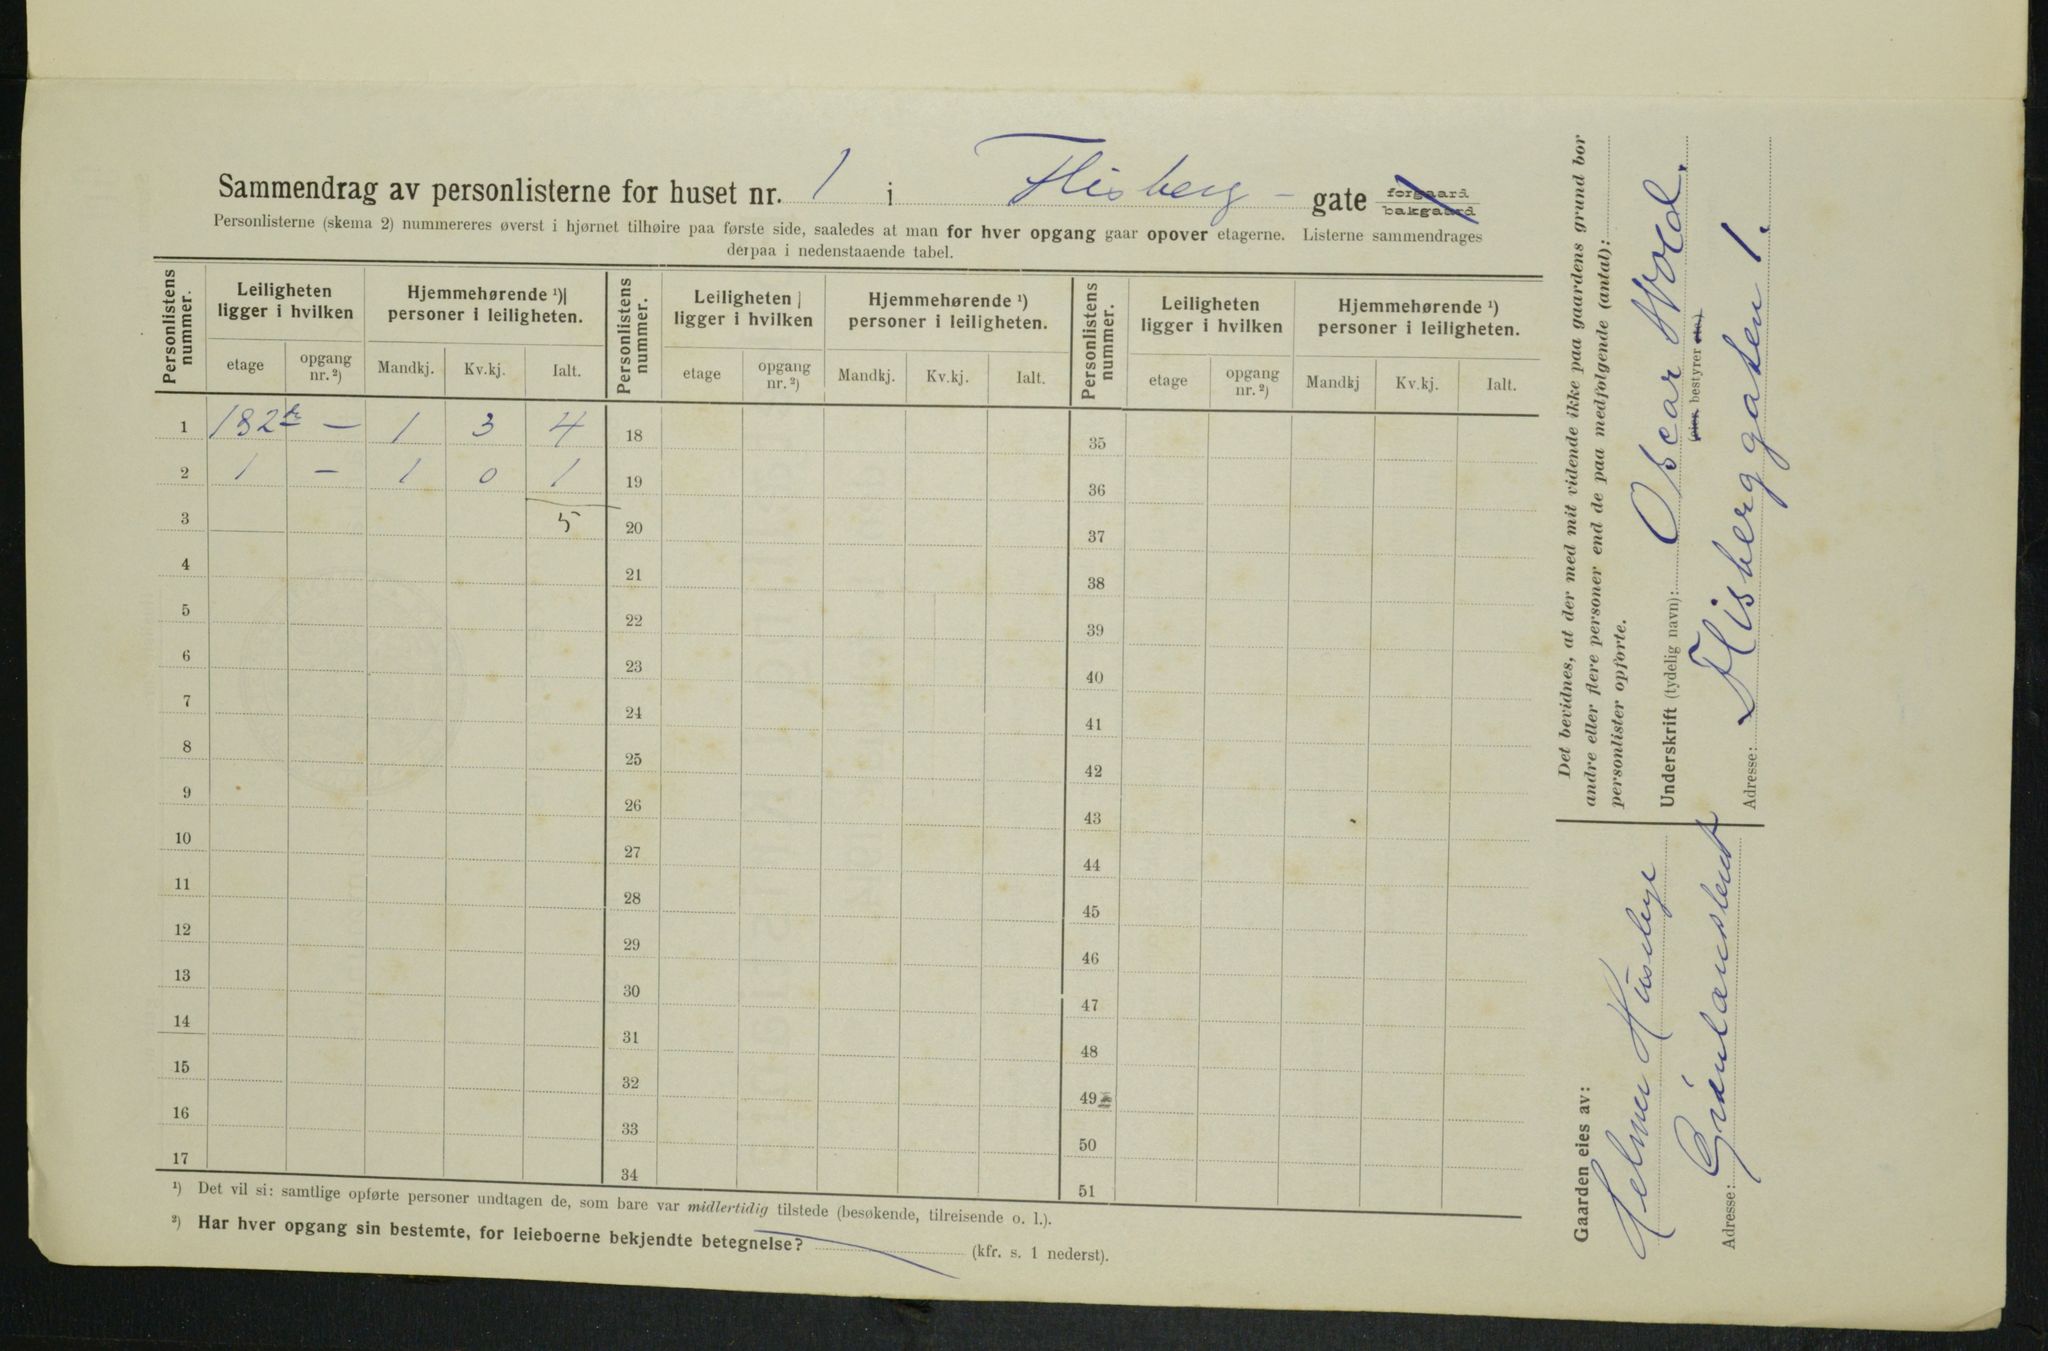 Sammendrag av personlisterne for huset nr. 1 i Flisberg- gate forgaard
bakgaard
Personlisterne (skema 2) nummereres øverst i hjørnet tilhøire paa første side, saaledes at man for hver opgang gaar opover etagerne. Listerne sammendrages
derpaa i nedenstaaende tabel.
Personlistens nummer. Leiligheten ligger i hvilken Hjemmehørende ¹) personer i leiligheten. Personlistens nummer. Leiligheten ligger i hvilken Hjemmehørende ¹) personer i leiligheten. Personlistens nummer. Leiligheten ligger i hvilken Hjemmehørende ¹) personer i leiligheten.
etage opgang nr. ²) Mandkj. Kv.kj. Ialt. etage opgang nr. ²) Mandkj. Kv.kj. Ialt. etage opgang nr. ²) Mandkj Kv.kj. Ialt.
1 — 1 3 4 18 35
2 1 — 1 0 1 19 36
3 5 20 37
4 21 38
5 22 39
6 23 40
7 24 41
8 25 42
9 26 43
10 27 44
11 28 45
12 29 46
13 30 47
14 31 48
15 32 49
16 33 50
17 34 51
¹) Det vil si: samtlige opførte personer undtagen de, som bare var midlertidig tilstede (besøkende, tilreisende o. l.).
²) Har hver opgang sin bestemte, for leieboerne bekjendte betegnelse? (kfr. s. 1 nederst).
Det bevidnes, at der med mit vidende ikke paa gaardens grund bor
andre eller flere personer end de paa medfølgende (antal):
personlister opførte.
Underskrift (tydelig navn): Oscar Wold.
(eier, bestyrer etc.)
Adresse: Flisberggaten 1.
Gaarden eies av:
Helmer Husbye
Adresse: Grønlandsleret